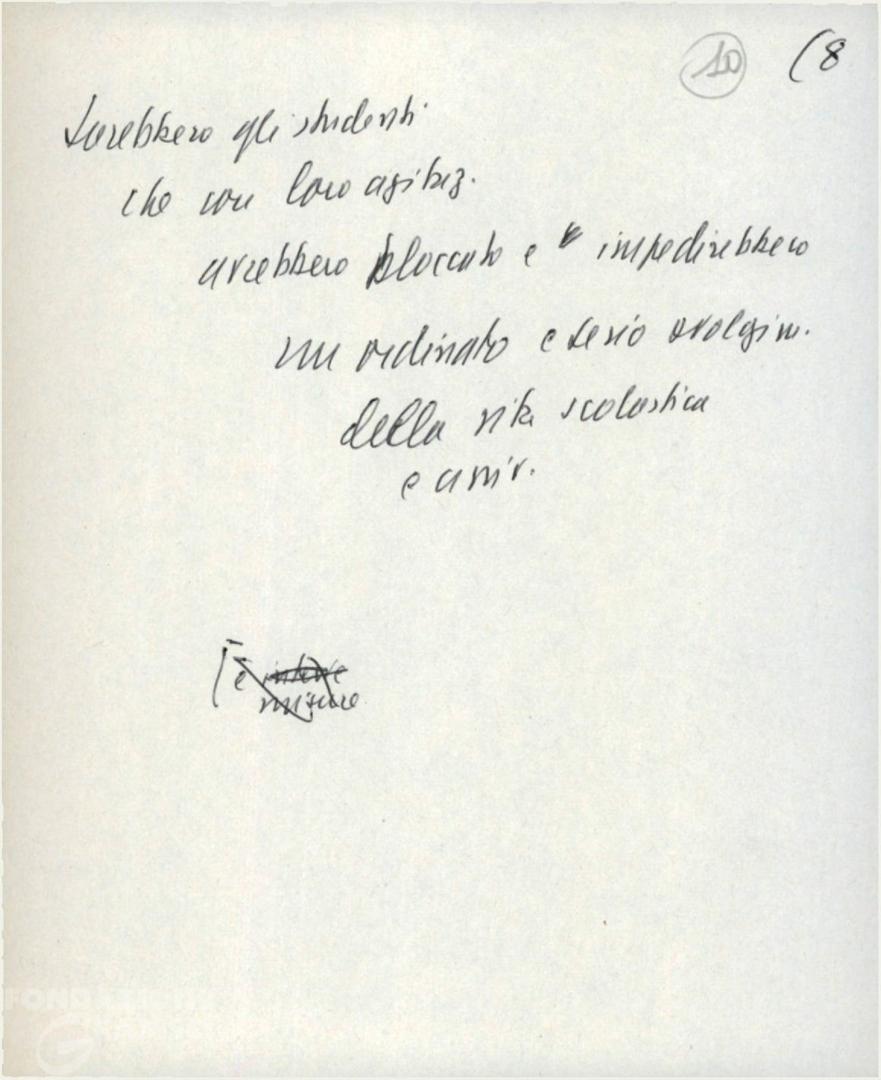 10 (8
Sarebbero gli studenti
che con loro agitaz.
avrebbero bloccato e impedirebbero
un ordinato e serio svolgim.
della vita scolastica
e univ.
[è
misure
FONDAZIONE